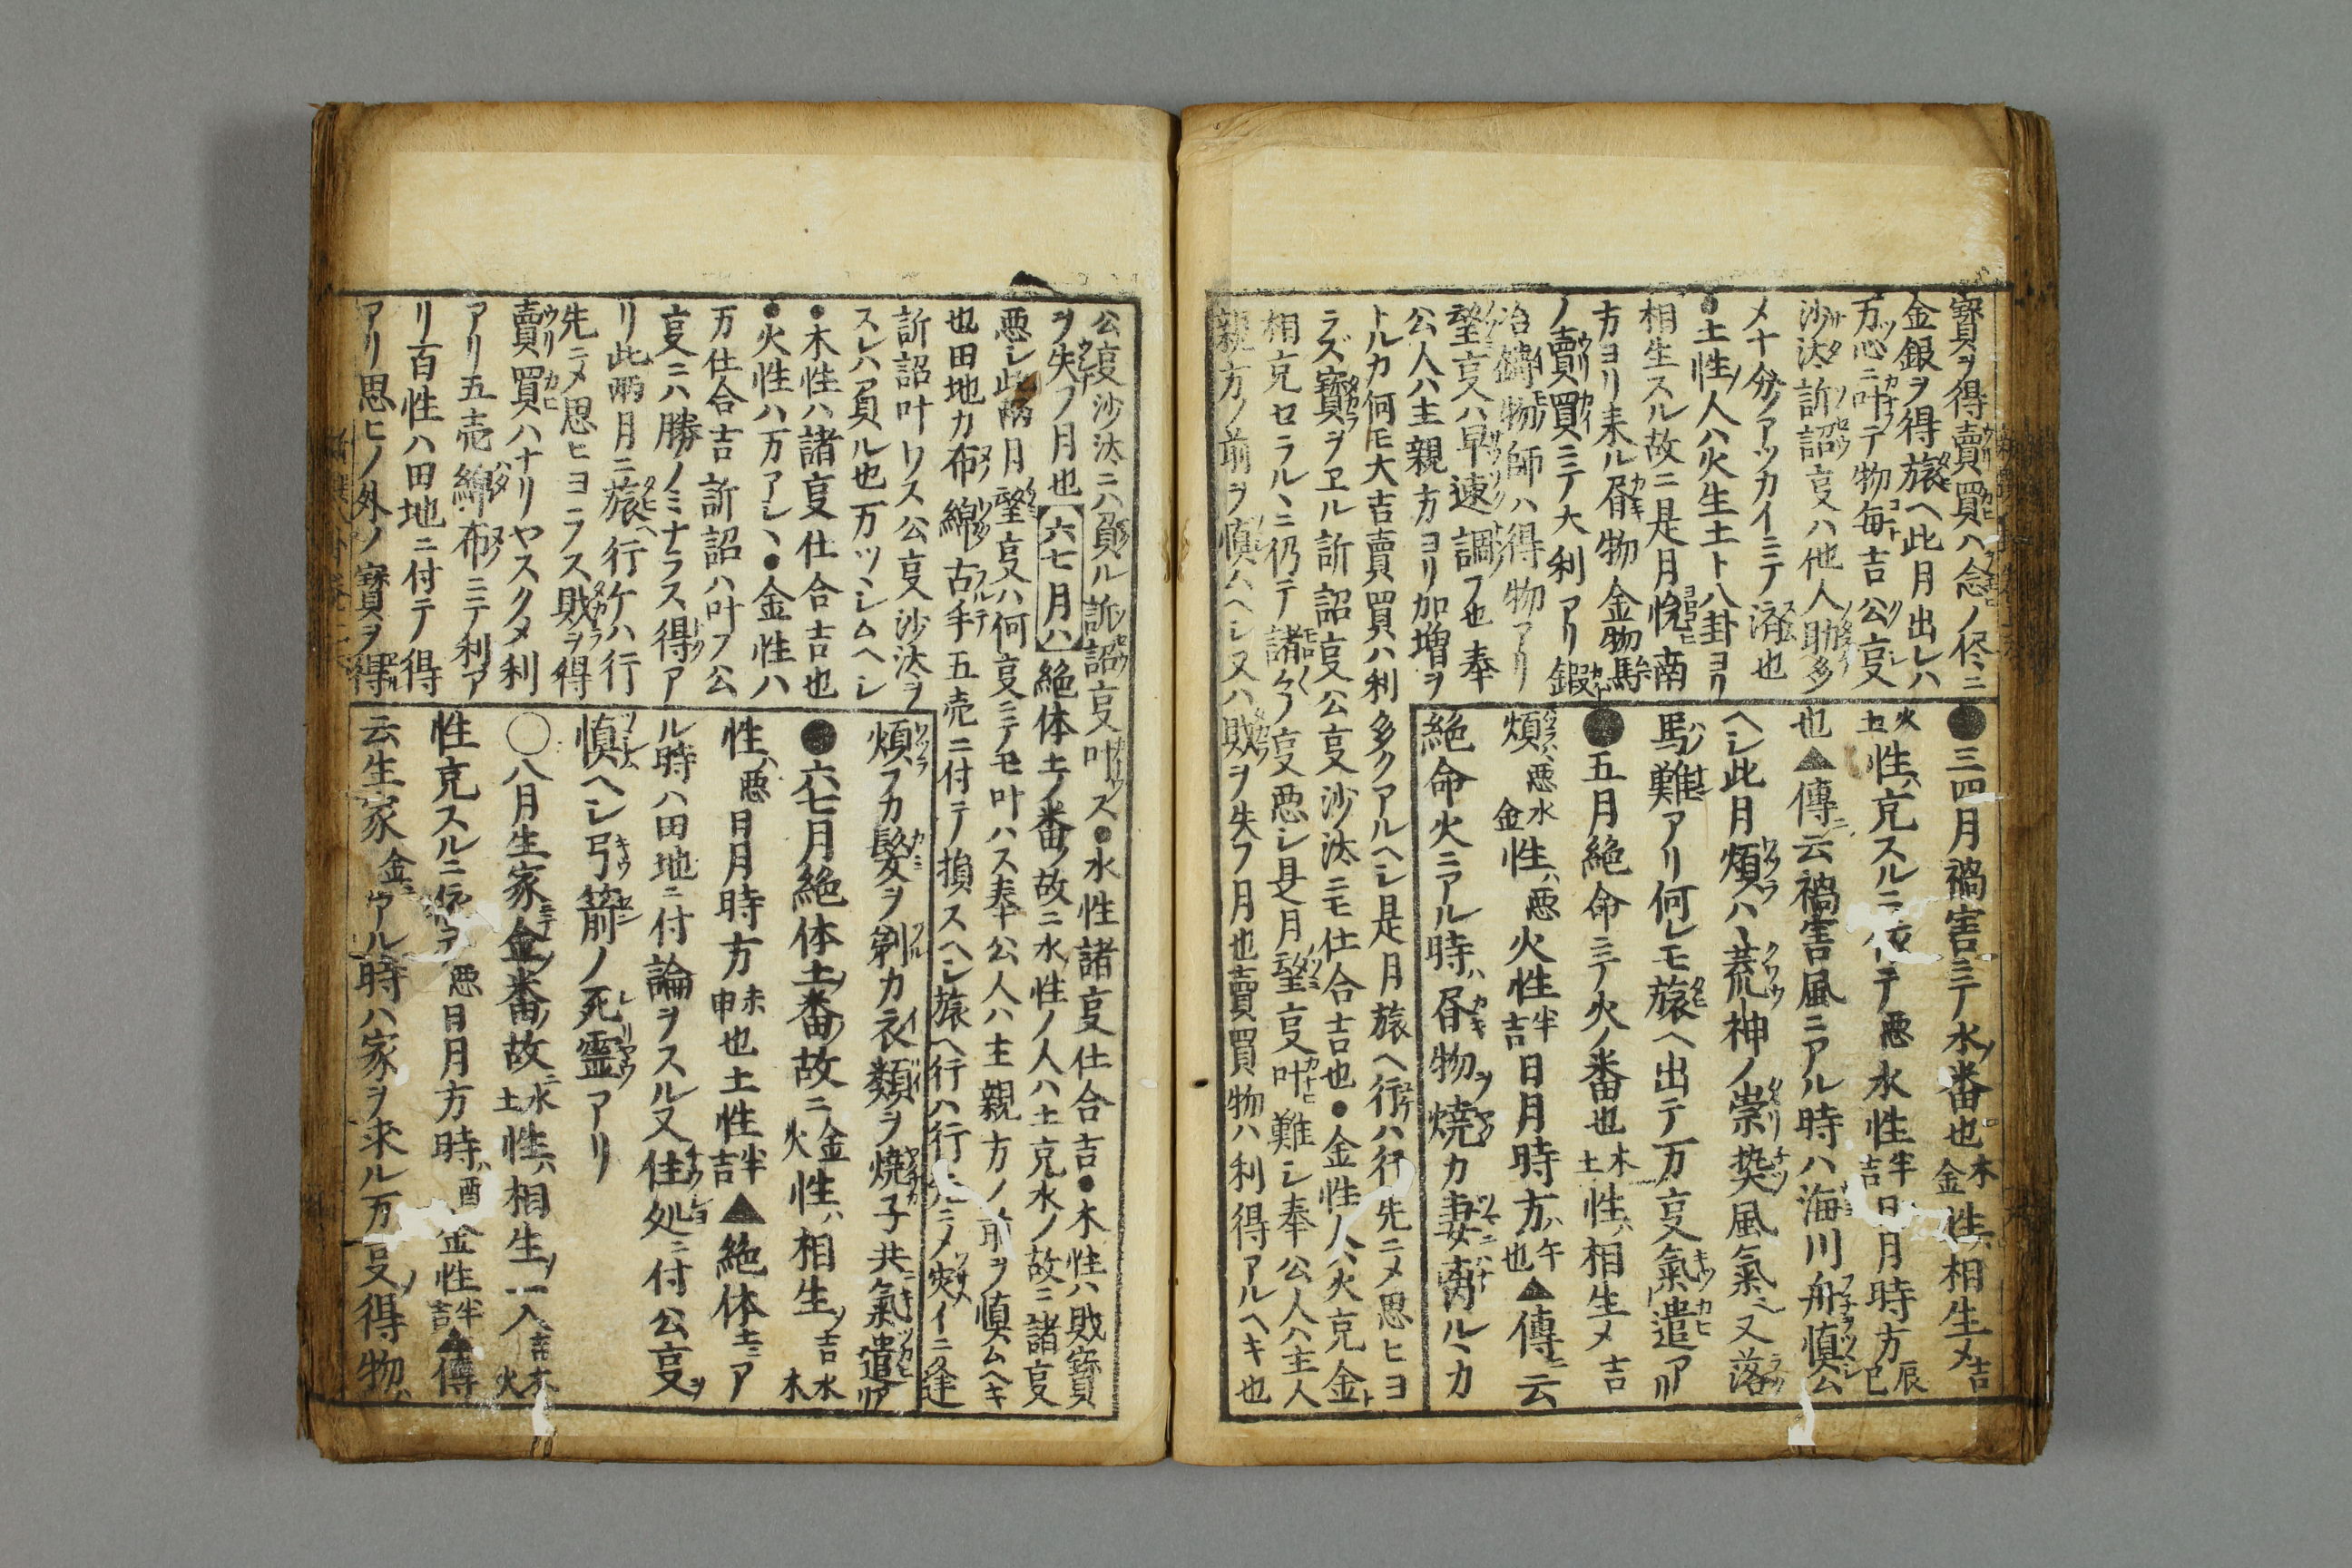 寳ヲ得賣買ハ念ノ侭ニ
金銀ヲ得旅ヘ此月出レハ
万心ニ叶テ物毎吉公叓
沙汰訴詔叓ハ他人助多
メ十分ノアツカイニテ済也
●土性ノ人ハ火生土ト八卦ヨリ
相生スル故ニ是月悦南
方ヨリ来ル昼物金物駘
ノ賣買ニテ大利アリ鍜
冶鋳物師ハ得物アリ
望叓ハ早速調フ也奉
公人ハ主親方ヨリ加増ヲ
トルカ何モ大吉賣買ハ利多クアルヘシ是月旅ヘ行ハ行先ニメ思ヒヨ
ラズ寳ヲヱル訴詔叓公叓沙汰ニモ仕合吉也●金性人ハ火克金ト
相克セラルヽニ仍テ諸々ノ叓悪シ是月望叓叶難シ奉公人ハ主人
親方ノ前ヲ慎ムヘシ又ハ敗ヲ失フ月也賣買物ハ利得アルヘキ也
●三四月禍害ニテ水ノ番也木金性ハ相生メ吉
火土性ハ克スルニ テ悪水性半吉日月時方辰巳
也▲傳ニ云禍害風ニアル時ハ海川舩慎ム
ヘシ此月煩ハヽ荒神ノ崇染風氣ヘ又落
馬ノ難アリ何レモ旅ヘ出テ万叓氣遣アリ
●五月絶命ニテ火ノ番也木土性ハ相生メ吉
煩ハ悪水金性ハ悪火性半吉日月時方ハ午也▲傳ニ云
絶命火ニアル時ハ昼物ヲ焼カ妻ニ ルヽカ
公叓沙汰ニハ負ル訴詔叓叶ハス●水性諸叓仕合吉●木性ハ敗寳
ヲ失フ月也【六七月ハ】絶体土ノ番故ニ水性ノ人ハ土克水ノ故ニ諸叓
悪シ此両月望叓ハ何叓ニテモ叶ハス奉公人ハ主親方ノ前ヲ慎ムヘキ
也田地カ布綿古手五売ニ付テ損スヘシ旅ヘ行ハ行先ニメ災イニ逢
訴詔叶ハス公叓沙汰ヲ
スレハ負ル也万ツヽシムヘシ
●木性ハ諸叓仕合吉也
●火性ハ万アシヽ●金性ハ
万仕合吉訴詔ハ叶フ公
叓ニハ勝ノミナラス得ア
リ此両月ニ旅ヘ行ケハ行
先ニメ思ヒヨラス敗ヲ得
賣買ハナリヤスクメ利
アリ五売綿布ニテ利ア
リ百性ハ田地ニ付テ得
アリ思ヒノ外ノ寳ヲ得
煩フカ髪ヲ剃カ衣類ヲ焼子共氣遣アリ
●六七月絶体土ノ番ノ故ニ金火性ハ相生ノ吉水木
性ハ悪日月時方未申也土性半吉▲絶体土ニア
ル時ハ田地ニ付論ヲスル又住処ニ付公叓ヲ
慎ムヘシ弓箭ノ死霊アリ
○八月生家ニテ金ノ番ノ故ニ水土性ハ相生ノ一入吉木火
性克スルニ 悪日月方時ハ酉金性半吉▲傳
云生家金ニアル時ハ家ヲ求ル万叓ノ得物ハ